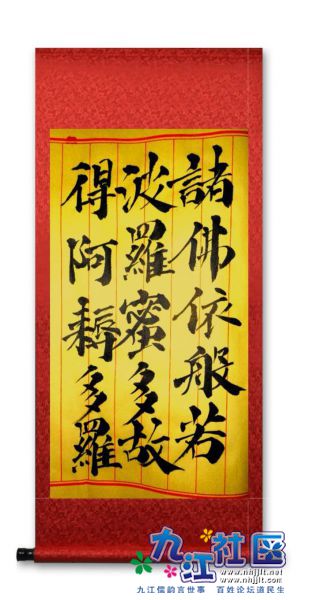 諸佛依般若
波羅蜜多故
得阿耨多羅
九江社区
www.nhjjlt.net
www.nhjjlt.com
九江儒韵言世事 百姓论坛道民生